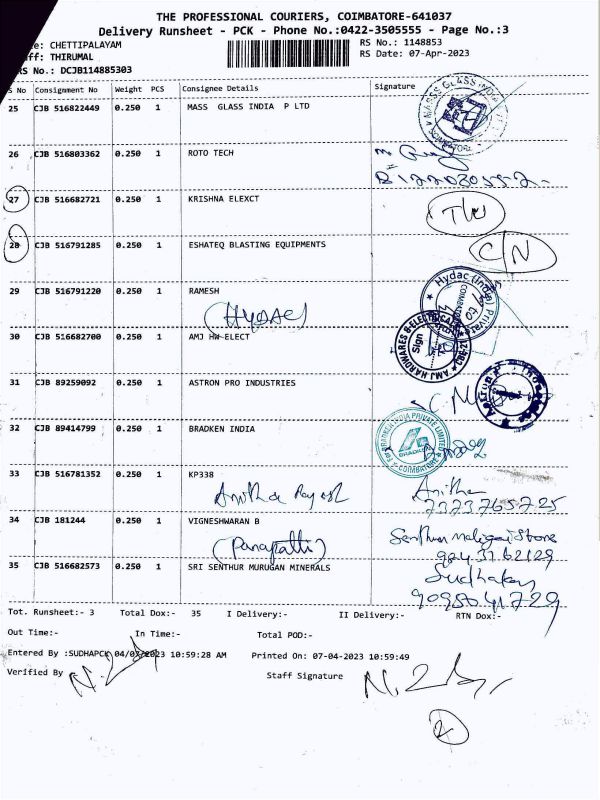 THE PROFESSIONAL COURIERS, COIMBATORE-641037
Delivery Runsheet - PCK - Phone No.:0422-3505555 - Page No.:3
e: CHETTIPALAYAM RS No.: 1148853
ff: THIRUMAL RS Date: 07-Apr-2023
RS No.: DCJB114885303
S No Consignment No Weight PCS Consignee Details Signature
25 CJB 516822449 0.250 1 MASS GLASS INDIA P LTD
26 CJB 516803362 0.250 1 ROTO TECH
27 CJB 516682721 0.250 1 KRISHNA ELEXCT
28 CJB 516791285 0.250 1 ESHATEQ BLASTING EQUIPMENTS C/N
29 CJB 516791220 0.250 1 RAMESH Hydac (India) Private
(Hydac)
30 CJB 516682700 0.250 1 AMJ HW ELECT AMJ HARDWARES & ELECTRICALS Sign
31 CJB 89259092 0.250 1 ASTRON PRO INDUSTRIES
32 CJB 89414799 0.250 1 BRADKEN INDIA For BRADKEN INDIA PRIVATE LIMITED BRADKEN COIMBATORE
33 CJB 516781352 0.250 1 KP338 Anitha
Anitha Rajesh 7373765725
34 CJB 181244 0.250 1 VIGNESHWARAN B Senthur maligai Store
(Panapatti) 9843162129
35 CJB 516682573 0.250 1 SRI SENTHUR MURUGAN MINERALS Sudhakar
9095641729
Tot. Runsheet:- 3 Total Dox:- 35 I Delivery:- II Delivery:- RTN Dox:-
Out Time:- In Time:- Total POD:-
Entered By :SUDHAPCK 04/07/2023 10:59:28 AM Printed On: 07-04-2023 10:59:49
Verified By Staff Signature